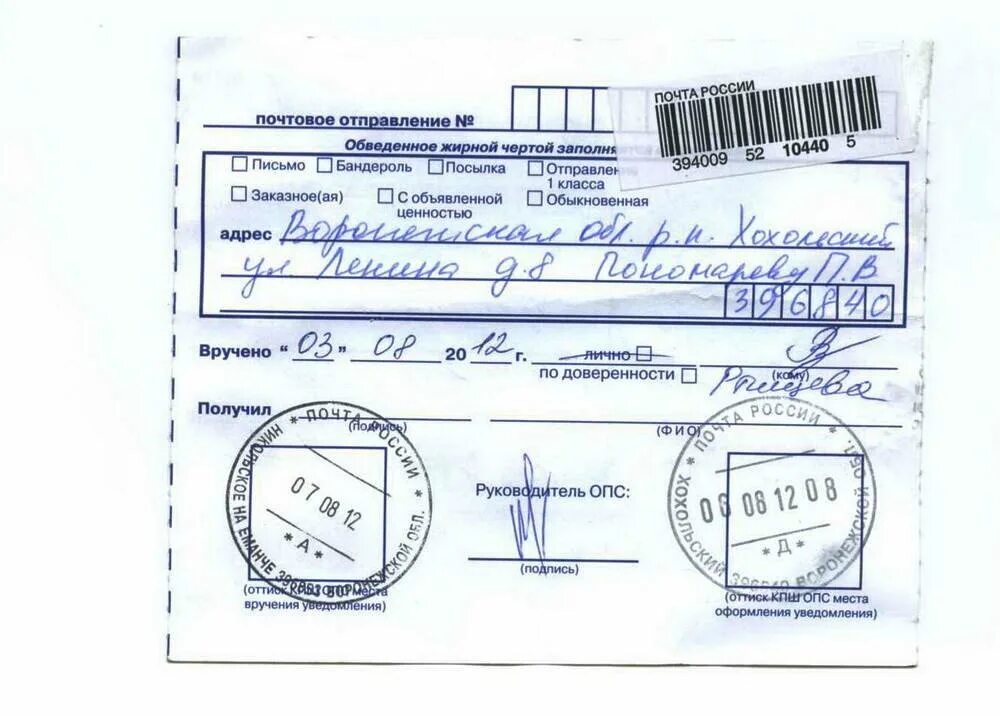 ПОЧТА РОССИИ
394009 52 10440 5
почтовое отправление №
Обведенное жирной чертой заполня
Письмо Бандероль Посылка Отправлен
1 класса
Заказное(ая) С объявленной ценностью Обыкновенная
адрес Воронежская обл. р.н. Хохольский
ул. Ленина д.8 Пономареву П.В
396840
Вручено "03" 08 2012 г. лично
(кому)
по доверенности
Получил
(подпись) (ФИО)
ПОЧТА РОССИИ
НИКОЛЬСКОЕ НА ЕМАНЧЕ 396853 ВОРОНЕЖСКОЙ ОБЛ.
07 08 12
А
Руководитель ОПС:
(подпись)
ПОЧТА РОССИИ
ХОХОЛЬСКИЙ 396840 ВОРОНЕЖСКОЙ ОБЛ.
06 08 12 08
Д
(оттиск КПШ ОПС места
вручения уведомления)
(оттиск КПШ ОПС места
оформления уведомления)